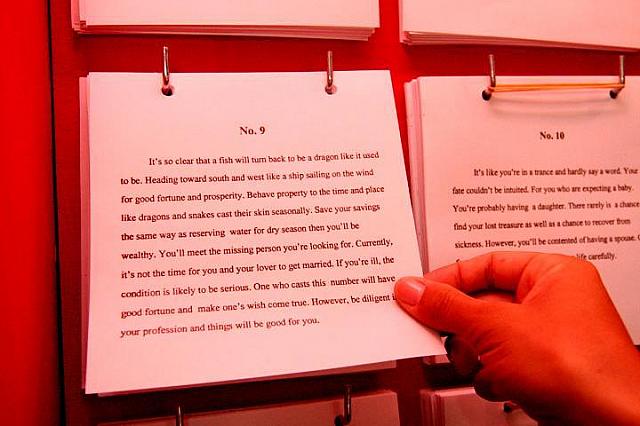 No. 9
It's so clear that a fish will turn back to be a dragon like it used
to be. Heading toward south and west like a ship sailing on the wind
for good fortune and prosperity. Behave property to the time and place
like dragons and snakes cast their skin seasonally. Save your savings
the same way as reserving water for dry season then you'll be
wealthy. You'll meet the missing person you're looking for. Currently,
it's not the time for you and your lover to get married. If you're ill, the
condition is likely to be serious. One who casts this number will have
good fortune and make one's wish come true. However, be diligent
your profession and things will be good for you.
No. 10
It's like you're in a trance and hardly say a word. Your
fate couldn't be intuited. For you who are expecting a baby.
You're probably having a daughter. There rarely is a chance
find your lost treasure as well as a chance to recover from
sickness. However, you'll be contented of having a spouse.
life carefully.